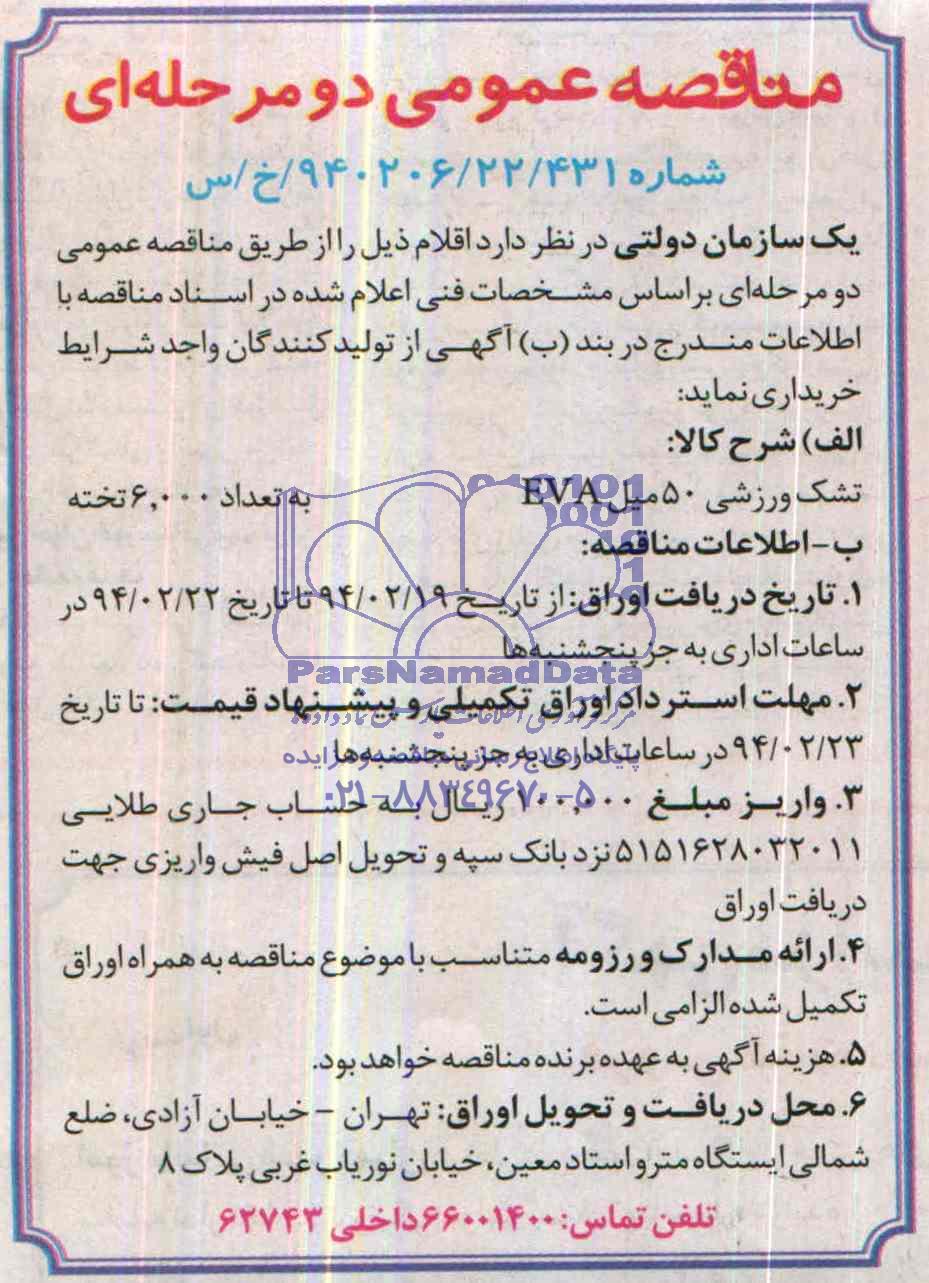 مناقصه عمومی دو مرحله‌ای
شماره ۹۴۰۲۰۶/۲۲/۴۳۱/خ/س
یک سازمان دولتی در نظر دارد اقلام ذیل را از طریق مناقصه عمومی
دو مرحله‌ای براساس مشخصات فنی اعلام شده در اسناد مناقصه با
اطلاعات مندرج در بند (ب) آگهی از تولیدکنندگان واجد شرایط
خریداری نماید:
الف) شرح کالا:
تشک ورزشی ۵۰ میل EVA به تعداد ۶,۰۰۰ تخته
ب-اطلاعات مناقصه:
۱. تاریخ دریافت اوراق: از تاریخ ۹۴/۰۲/۱۹ تا تاریخ ۹۴/۰۲/۲۲ در
ساعات اداری به جز پنجشنبه‌ها
ParsNamadData
۲. مهلت استرداد اوراق تکمیلی و پیشنهاد قیمت: تا تاریخ
۹۴/۰۲/۲۳ در ساعات اداری به جز پنجشنبه‌ها
۰۲۱-۸۸۳۴۹۶۷۰-۵
۳. واریز مبلغ ۱۰۰,۰۰۰ ریال به حساب جاری طلایی
۵۱۵۱۶۲۸۰۳۲۰۱۱ نزد بانک سپه و تحویل اصل فیش واریزی جهت
دریافت اوراق
۴. ارائه مدارک و رزومه متناسب با موضوع مناقصه به همراه اوراق
تکمیل شده الزامی است.
۵. هزینه آگهی به عهده برنده مناقصه خواهد بود.
۶. محل دریافت و تحویل اوراق: تهران - خیابان آزادی، ضلع
شمالی ایستگاه مترو استاد معین، خیابان نوریاب غربی پلاک ۸
تلفن تماس: ۶۶۰۰۱۴۰۰ داخلی ۶۲۷۴۳